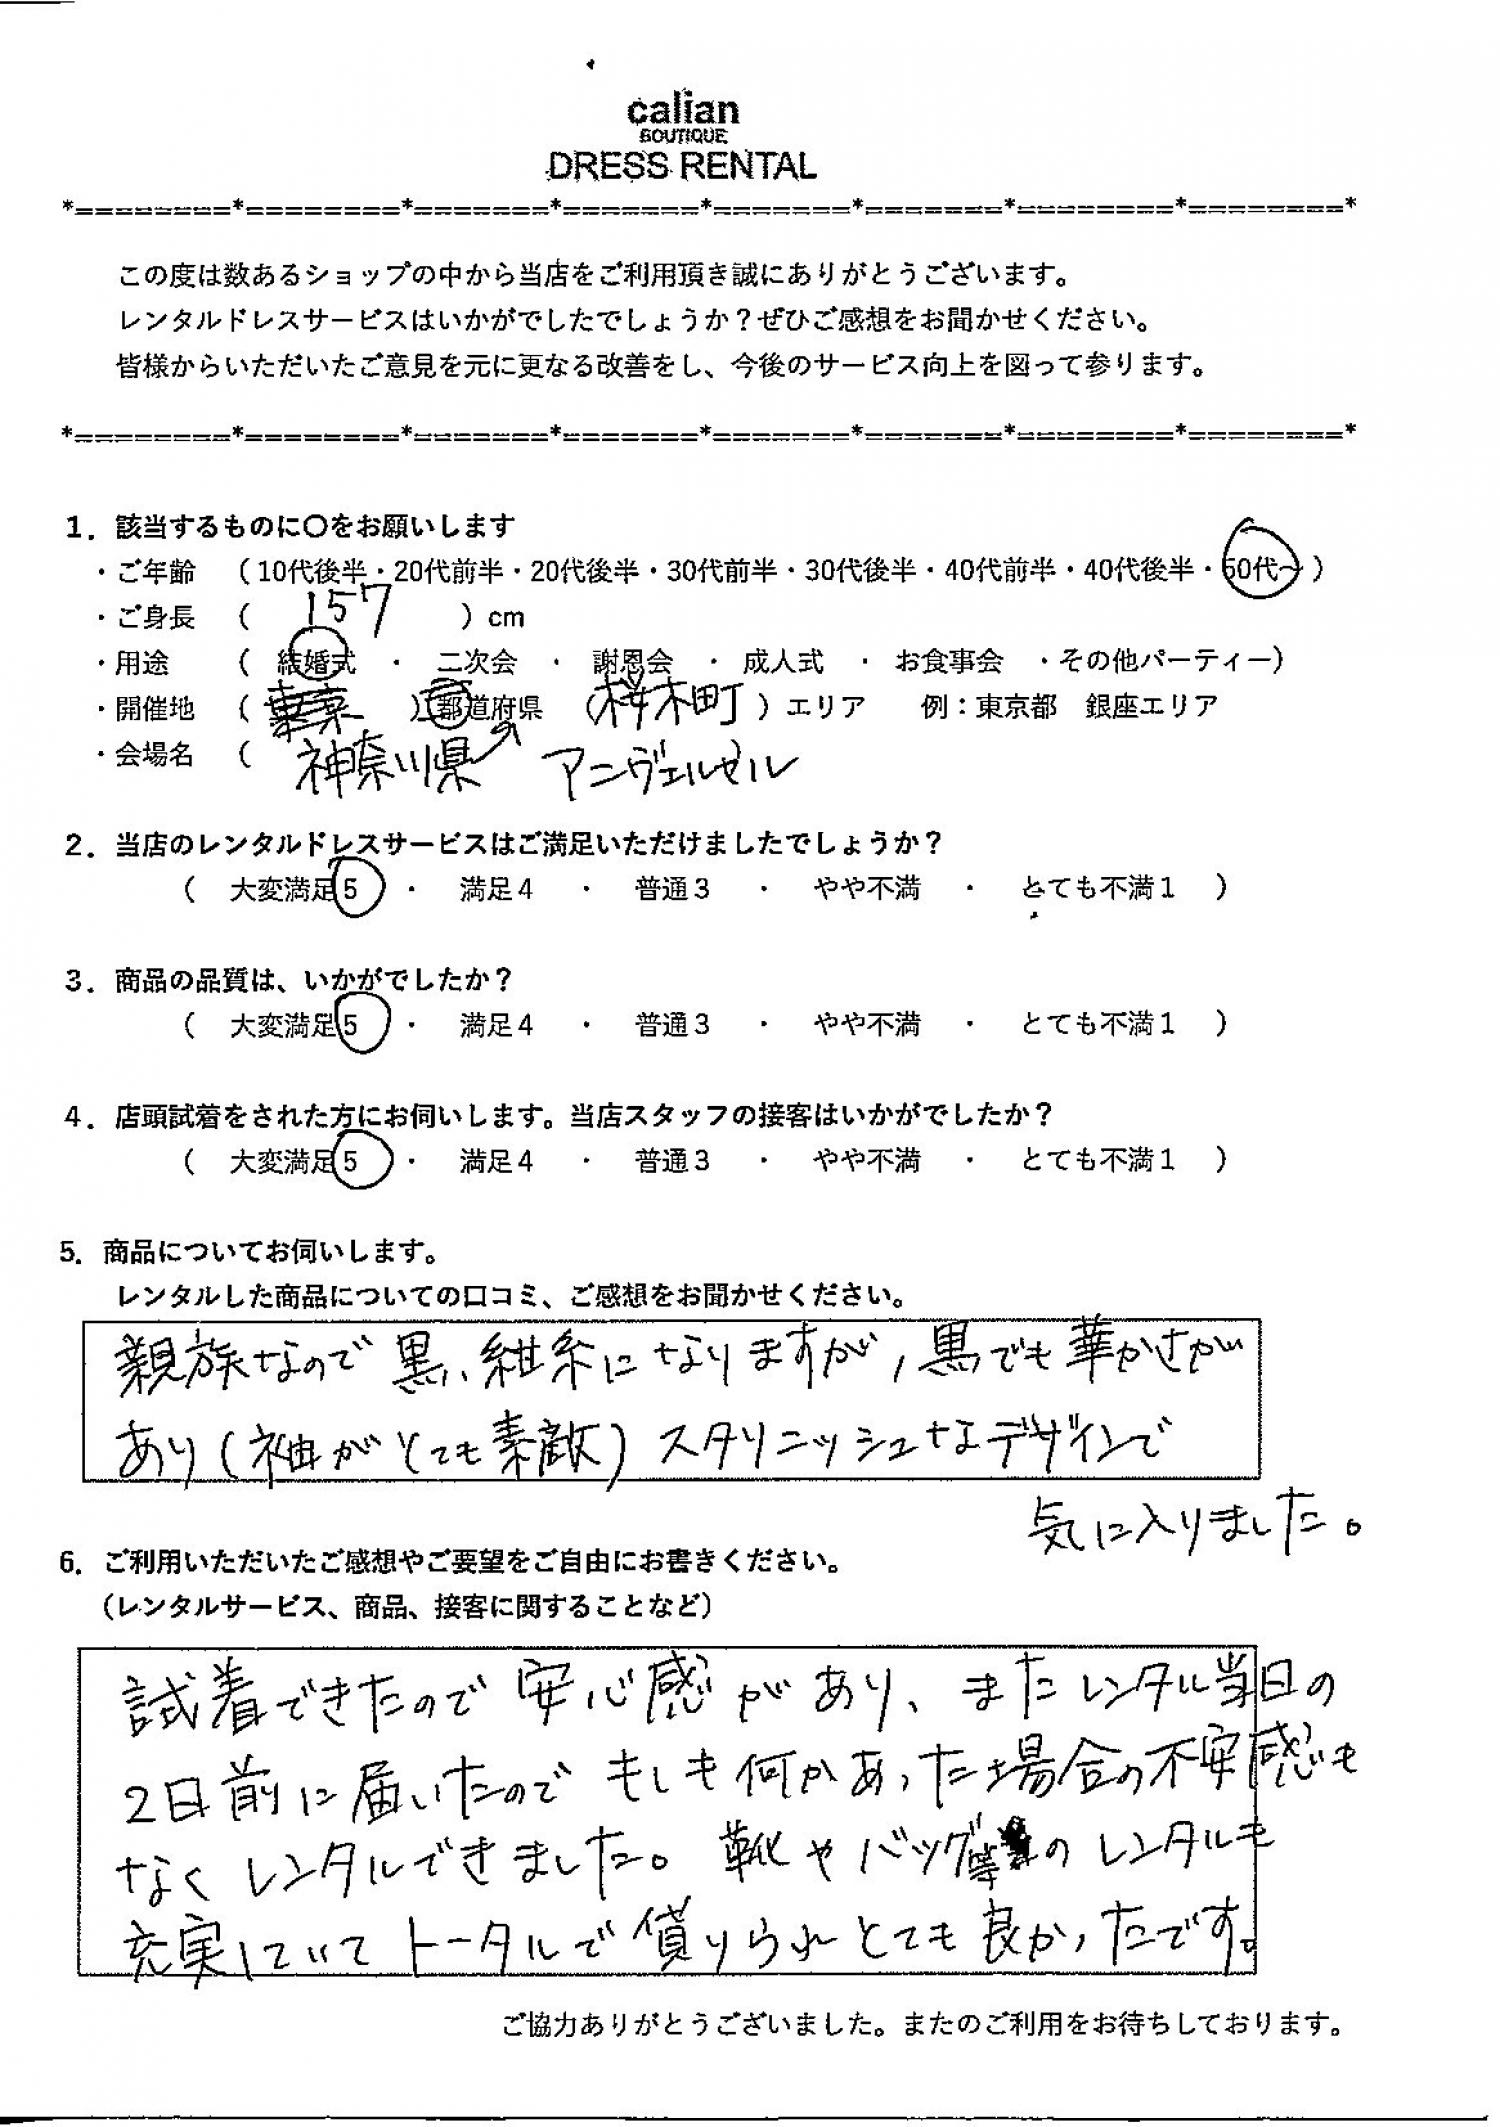 calian
BOUTIQUE
DRESS RENTAL
*========*========*=======*=======*=======*=======*========*========*
この度は数あるショップの中から当店をご利用頂き誠にありがとうございます。
レンタルドレスサービスはいかがでしたでしょうか？ぜひご感想をお聞かせください。
皆様からいただいたご意見を元に更なる改善をし、今後のサービス向上を図って参ります。
*========*========*=======*=======*=======*=======*========*========*
1．該当するものに〇をお願いします
・ご年齢 （10代後半・20代前半・20代後半・30代前半・30代後半・40代前半・40代後半・50代～）
・ご身長 （ 157 ）cm
・用途 （ 結婚式 ・ 二次会 ・ 謝恩会 ・ 成人式 ・ お食事会 ・その他パーティー）
・開催地 （ 東京 ）都道府県 （桜木町 ）エリア 例：東京都 銀座エリア
・会場名 （ 神奈川県 アニヴェルセル
2．当店のレンタルドレスサービスはご満足いただけましたでしょうか？
（ 大変満足5 ・ 満足4 ・ 普通3 ・ やや不満 ・ とても不満1 ）
3．商品の品質は、いかがでしたか？
（ 大変満足5 ・ 満足4 ・ 普通3 ・ やや不満 ・ とても不満1 ）
4．店頭試着をされた方にお伺いします。当店スタッフの接客はいかがでしたか？
（ 大変満足5 ・ 満足4 ・ 普通3 ・ やや不満 ・ とても不満1 ）
5．商品についてお伺いします。
レンタルした商品についての口コミ、ご感想をお聞かせください。
親族なので黒、紺系になりますが、黒でも華かさが
あり(袖がとても素敵)スタリニッシュなデザインで
気に入りました。
6．ご利用いただいたご感想やご要望をご自由にお書きください。
（レンタルサービス、商品、接客に関することなど）
試着できたので安心感があり、またレンタル当日の
2日前に届いたのでもしも何かあった場合の不安感も
なくレンタルできました。靴やバッグ等のレンタルも
充実していてトータルで借りられとても良かったです。
ご協力ありがとうございました。またのご利用をお待ちしております。